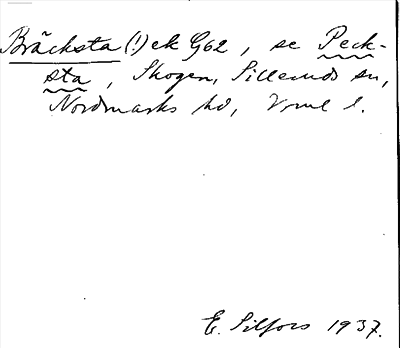 Bräcksta (!) ek G62, se Peck-
sta, Skogen, Silleruds sn,
Nordmarks hd, Vrml l.
E. Silfors 1937.